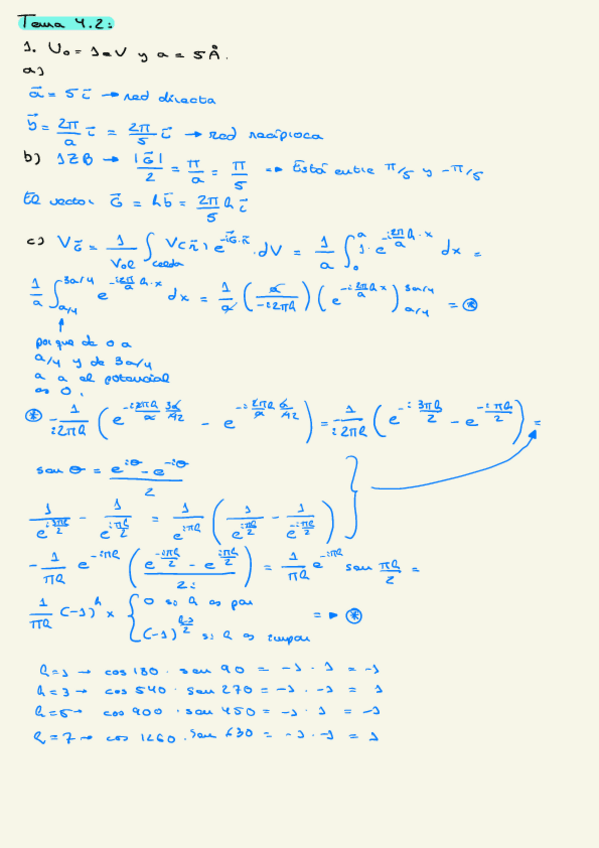 Tema 4.2:
1. U₀ = 1 eV y a = 5 Å.
a)
a⃗ = 5 i⃗ → red directa
b⃗ = 2π/a i⃗ = 2π/5 i⃗ → red recíproca
b) 1ZB → |G⃗|/2 = π/a = π/5 ⇒ Está entre π/5 y -π/5
El vector G⃗ = h b⃗ = 2πh/5 i⃗
c) V_G⃗ = 1/Vol ∫_celda V(r⃗) e^(-iG⃗·r⃗) · dV = 1/a ∫₀^a 1 · e^(-i 2π/a h·x) dx =
1/a ∫_(a/4)^(3a/4) e^(-i 2π/a h·x) dx = 1/a (a/(-i2πh)) (e^(-i 2πh/a x))_(a/4)^(3a/4) = ⊛
porque de 0 a
a/4 y de 3a/4
a a el potencial
es 0.
⊛ -1/(i2πh) (e^(-i 2πh/a 3a/42) - e^(-i 2πh/a a/42)) = -1/(i2πh) (e^(-i 3πh/2) - e^(-i πh/2)) =
sen θ = (e^(iθ) - e^(-iθ))/2
1/e^(i 3πh/2) - 1/e^(i πh/2) = 1/e^(iπh) (1/e^(i πh/2) - 1/e^(-i πh/2))
-1/(πh) e^(-iπh) ((e^(-iπh/2) - e^(iπh/2))/2i) = 1/(πh) e^(-iπh) sen πh/2 =
1/(πh) (-1)^h × { 0 si h es par
(-1)^((h-1)/2) si h es impar ⇒ ⊛
h=1 → cos 180 · sen 90 = -1 · 1 = -1
h=3 → cos 540 · sen 270 = -1 · -1 = 1
h=5 → cos 900 · sen 450 = -1 · 1 = -1
h=7 → cos 1260 · sen 630 = -1 · -1 = 1